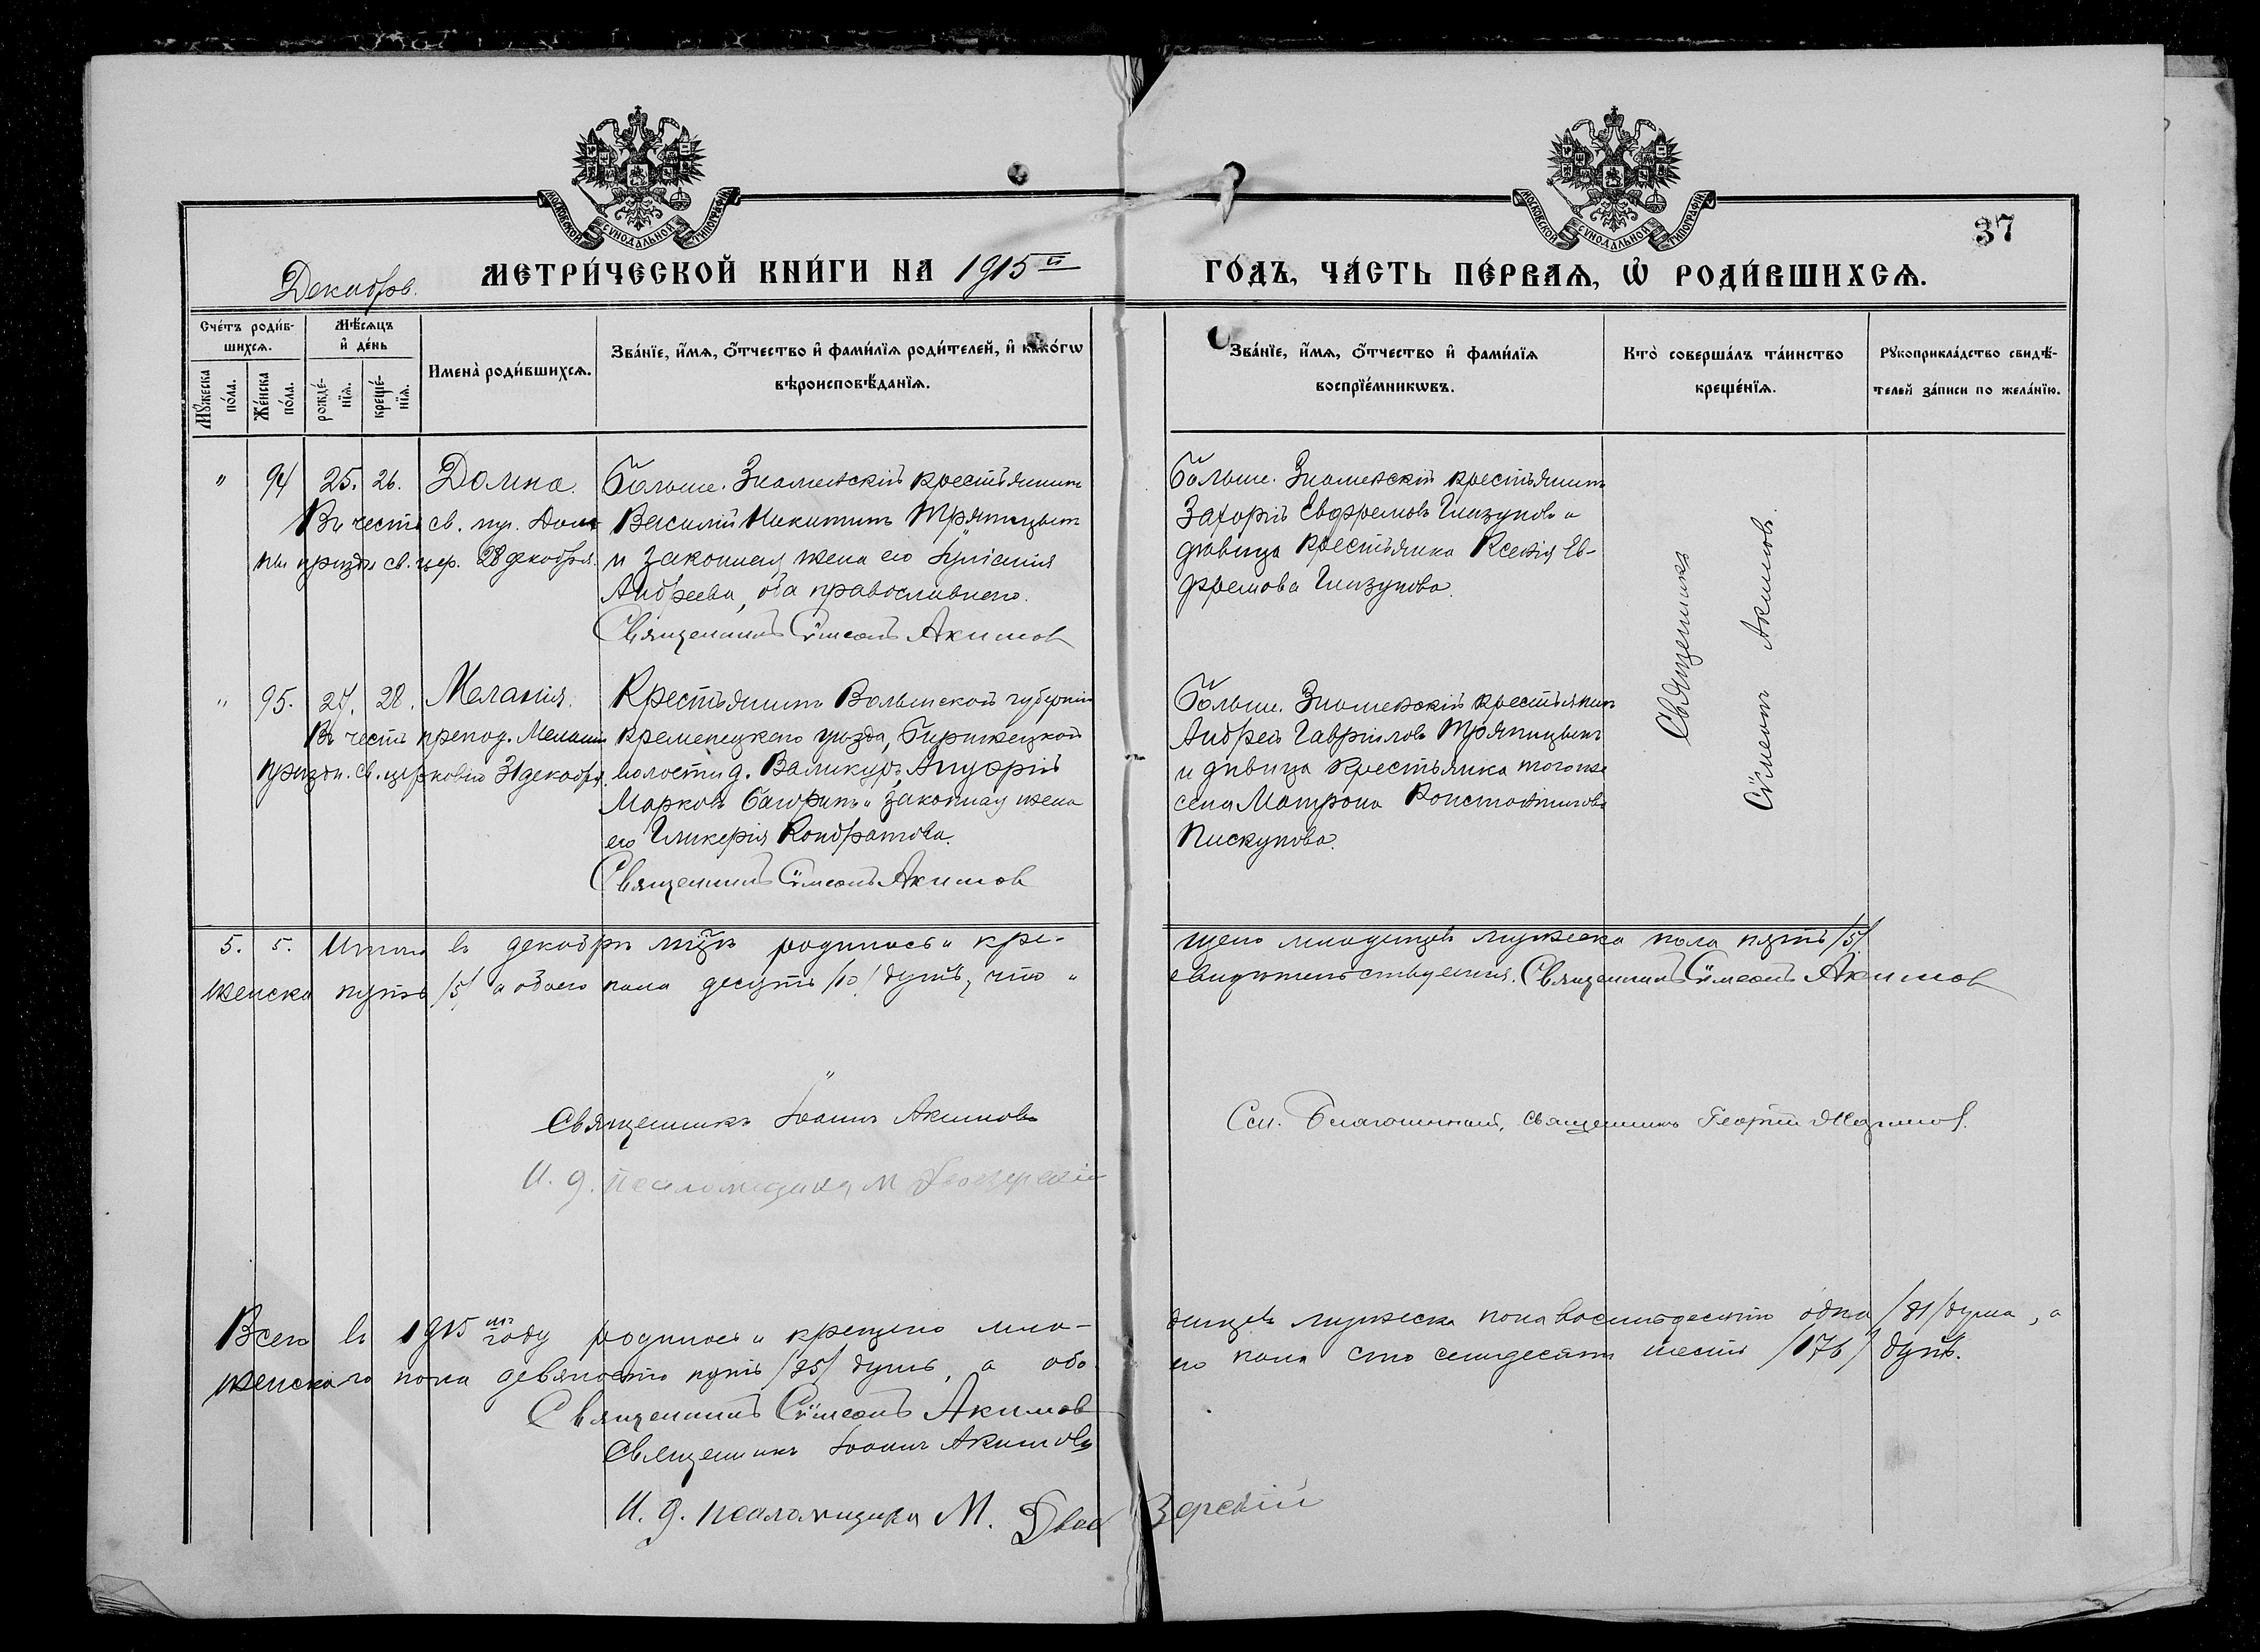 МОСКОВСКОЙ СУНОДАЛЬНОЙ ТИПОГРАФІИ
МОСКОВСКОЙ СУНОДАЛЬНОЙ ТИПОГРАФІИ
37
Декабрь.
МЕТРИ́ЧЕСКОЙ КНИ́ГИ НА 1915й
ГО́ДЪ, ЧА́СТЬ ПЕ́РВАѦ, Ѡ҆ РОДИ́ВШИХСѦ.
Сче́тъ роди́в-
шихсѧ.
Мꙋ́жеска по́ла.
Же́нска по́ла.
Мѣ́сѧцъ
и҆ де́нь
рожде́-нїѧ.
креще́-нїѧ.
Имена̀ роди́вшихсѧ.
Зва́нїе, и҆́мѧ, ѻ҆́тчество и҆ фами́лїѧ роди́телей, и҆ како́гѡ
вѣроисповѣ́данїѧ.
Зва́нїе, и҆́мѧ, ѻ҆́тчество и҆ фами́лїѧ
воспрїе́мникѡвъ.
Кто̀ соверша́лъ та́инство
креще́нїѧ.
Рꙋкоприкла́дство свидѣ́-
телей за́писи по жела́нїю.
" 94 25. 26. Домна.
Въ честь св. муч. Домн
ны праздн св. цер. 28 декабря.
Больше. Знаменскій крестьянинъ
Василій Никитинъ Тряпицынъ
и законная жена его Іуліанія
Андреева, оба православнаго.
Священникъ Сѵмеонъ Акимов
Больше. Знаменскій крестьянинъ
Захарій Евфремовъ Глазуновъ и
дѣвица крестьянка Ксенія Ев-
фремова Глазунова.
Священникъ
Сѵмеонъ Акимовъ.
" 95. 27. 28. Меланія.
Въ честь препод. Мелании
праздн. св. церковію 31 декабря.
Крестьянинъ Волынской губерніи
Кременецкаго уѣзда,
волости д.
Марковъ и законная жена
его Гликерія Кондратова.
Священникъ Сѵмеонъ Акимов
Больше. Знаменскій крестьянинъ
Андрей Гавріиловъ Тряпицынъ
и дѣвица крестьянка того же
села Матрона Константинова
Пискунова.
5. 5. Итого въ декабрѣ мцѣ родилось и кре-
щено младенцевъ мужеска пола пять /5/
женска пять /5/ а обоего пола десять /10/ душъ, что и
свидѣтельствуемъ. Священникъ Сѵмеонъ Акимов
Священникъ Іоаннъ Акимовъ
И. д. псаломщика М.
Благочинный, священникъ Георгій
Всего въ 1915мъ году родилось и крещено мла-
денцевъ мужеска пола восемьдесятъ одна /81/ душа, а
женскаго пола девяносто пять /95/ душъ, а обо-
его пола сто семьдесятъ шесть /176/ душъ.
Священникъ Сѵмеонъ Акимов
Священникъ Іоаннъ Акимовъ
И. д. псаломщика М.